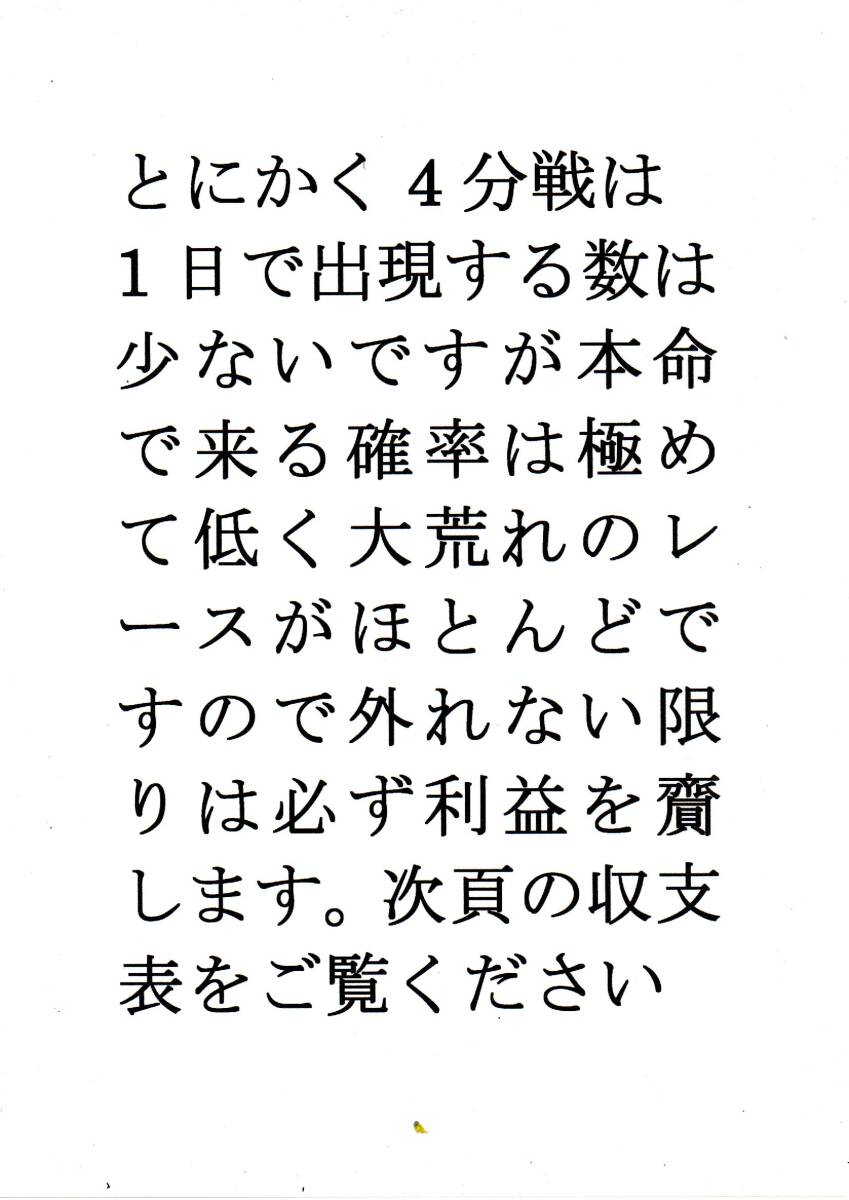 とにかく4分戦は
1日で出現する数は
少ないですが本命
で来る確率は極め
て低く大荒れのレ
ースがほとんどで
すので外れない限
りは必ず利益を齎
します。次頁の収支
表をご覧ください